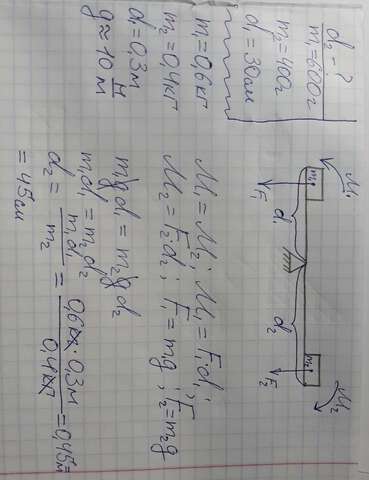 d₂ - ?
m₁ = 600г
m₂ = 400г
d₁ = 30см
m₁ = 0,6 кг
m₂ = 0,4 кг
d₁ = 0,3 м
g ≈ 10 Н/м
M₁
m₁
F₁
d₁
d₂
m₂
F₂
M₂
M₁ = M₂; M₁ = F₁d₁;
M₂ = F₂d₂; F₁ = m₁g; F₂ = m₂g
m₁gd₁ = m₂gd₂
m₁d₁ = m₂d₂
d₂ = m₁d₁/m₂ = 0,6кг·0,3м/0,4кг = 0,45м =
= 45см